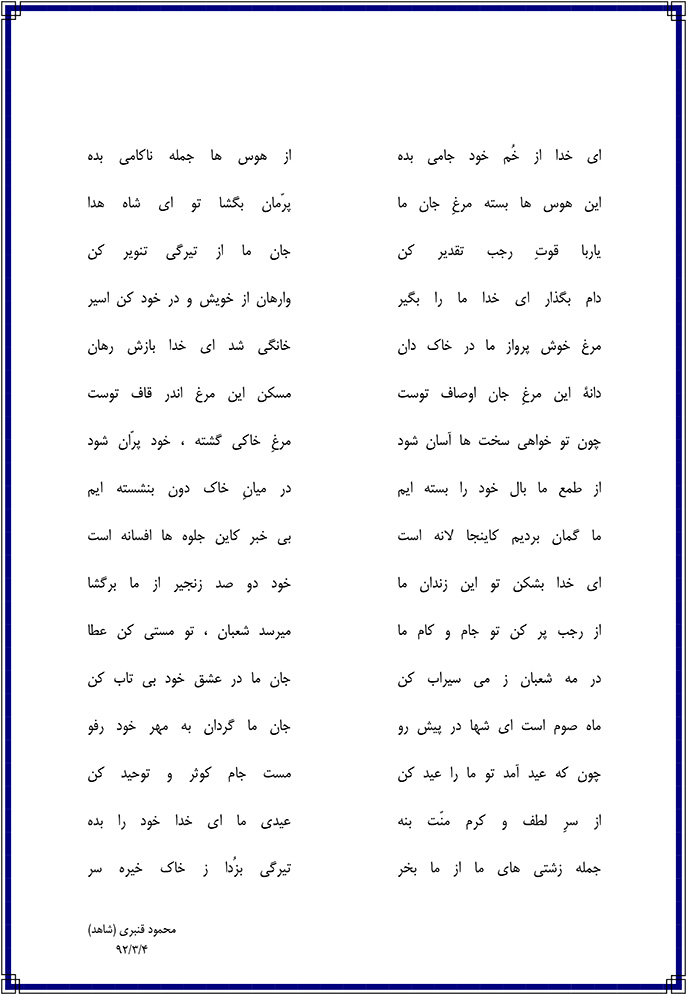 ای خدا از خُم خود جامی بده از هوس ها جمله ناکامی بده
این هوس ها بسته مرغِ جان ما پرّمان بگشا تو ای شاه هدا
یاربا قوتِ رجب تقدیر کن جان ما از تیرگی تنویر کن
دام بگذار ای خدا ما را بگیر وارهان از خویش و در خود کن اسیر
مرغ خوش پرواز ما در خاک دان خانگی شد ای خدا بازش رهان
دانۀ این مرغِ جان اوصاف توست مسکن این مرغ اندر قاف توست
چون تو خواهی سخت ها آسان شود مرغِ خاکی گشته ، خود پرّان شود
از طمع ما بال خود را بسته ایم در میانِ خاک دون بنشسته ایم
ما گمان بردیم کاینجا لانه است بی خبر کاین جلوه ها افسانه است
ای خدا بشکن تو این زندان ما خود دو صد زنجیر از ما برگشا
از رجب پر کن تو جام و کام ما میرسد شعبان ، تو مستی کن عطا
در مه شعبان ز می سیراب کن جان ما در عشق خود بی تاب کن
ماه صوم است ای شها در پیش رو جان ما گردان به مهر خود رفو
چون که عید آمد تو ما را عید کن مست جام کوثر و توحید کن
از سرِ لطف و کرم منّت بنه عیدی ما ای خدا خود را بده
جمله زشتی های ما از ما بخر تیرگی بزُدا ز خاک خیره سر
محمود قنبری (شاهد)
۹۲/۳/۴